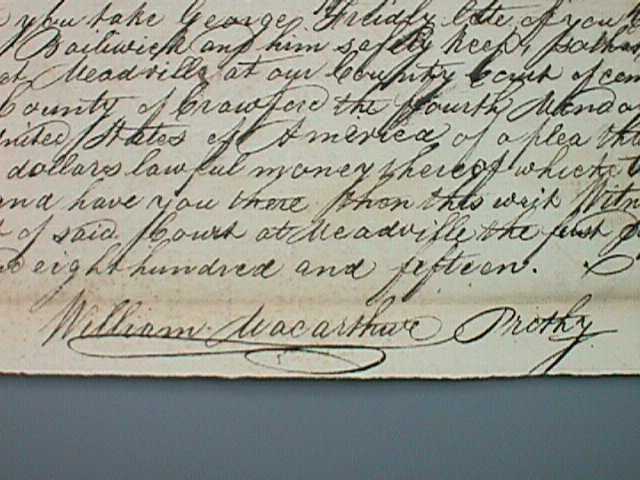 you take George Freidly late of you
Bailiwick and him safely keep, so tha
at Meadville at our County Court of com
County of Crawford the fourth Monda
nited States of America of a plea tha
dollars lawful money thereof which
and have you there then this writ Witn
of said Court at Meadville the first
eight hundred and fifteen.
William Macarthur Prothy